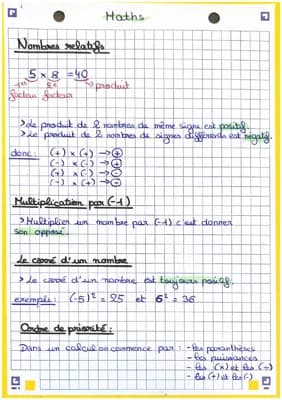 Maths
Nombres relatifs
5 x 8 = 40
facteur facteur produit
> Le produit de 2 nombres de même signe est positif.
> Le produit de 2 nombres de signes différents est négatif.
donc : (+) x (+) → (+)
(-) x (-) → (+)
(+) x (-) → (-)
(-) x (+) → (-)
Multiplication par (-1)
> Multiplier un nombre par (-1) c'est donner
son opposé.
Le carré d'un nombre
> Le carré d'un nombre est toujours positif.
exemple : (-5)² = 25 et 6² = 36
Ordre de priorité :
Dans un calcul on commence par : - les parenthèses
- les puissances
- les (x) et les (÷)
- les (+) et les (-)